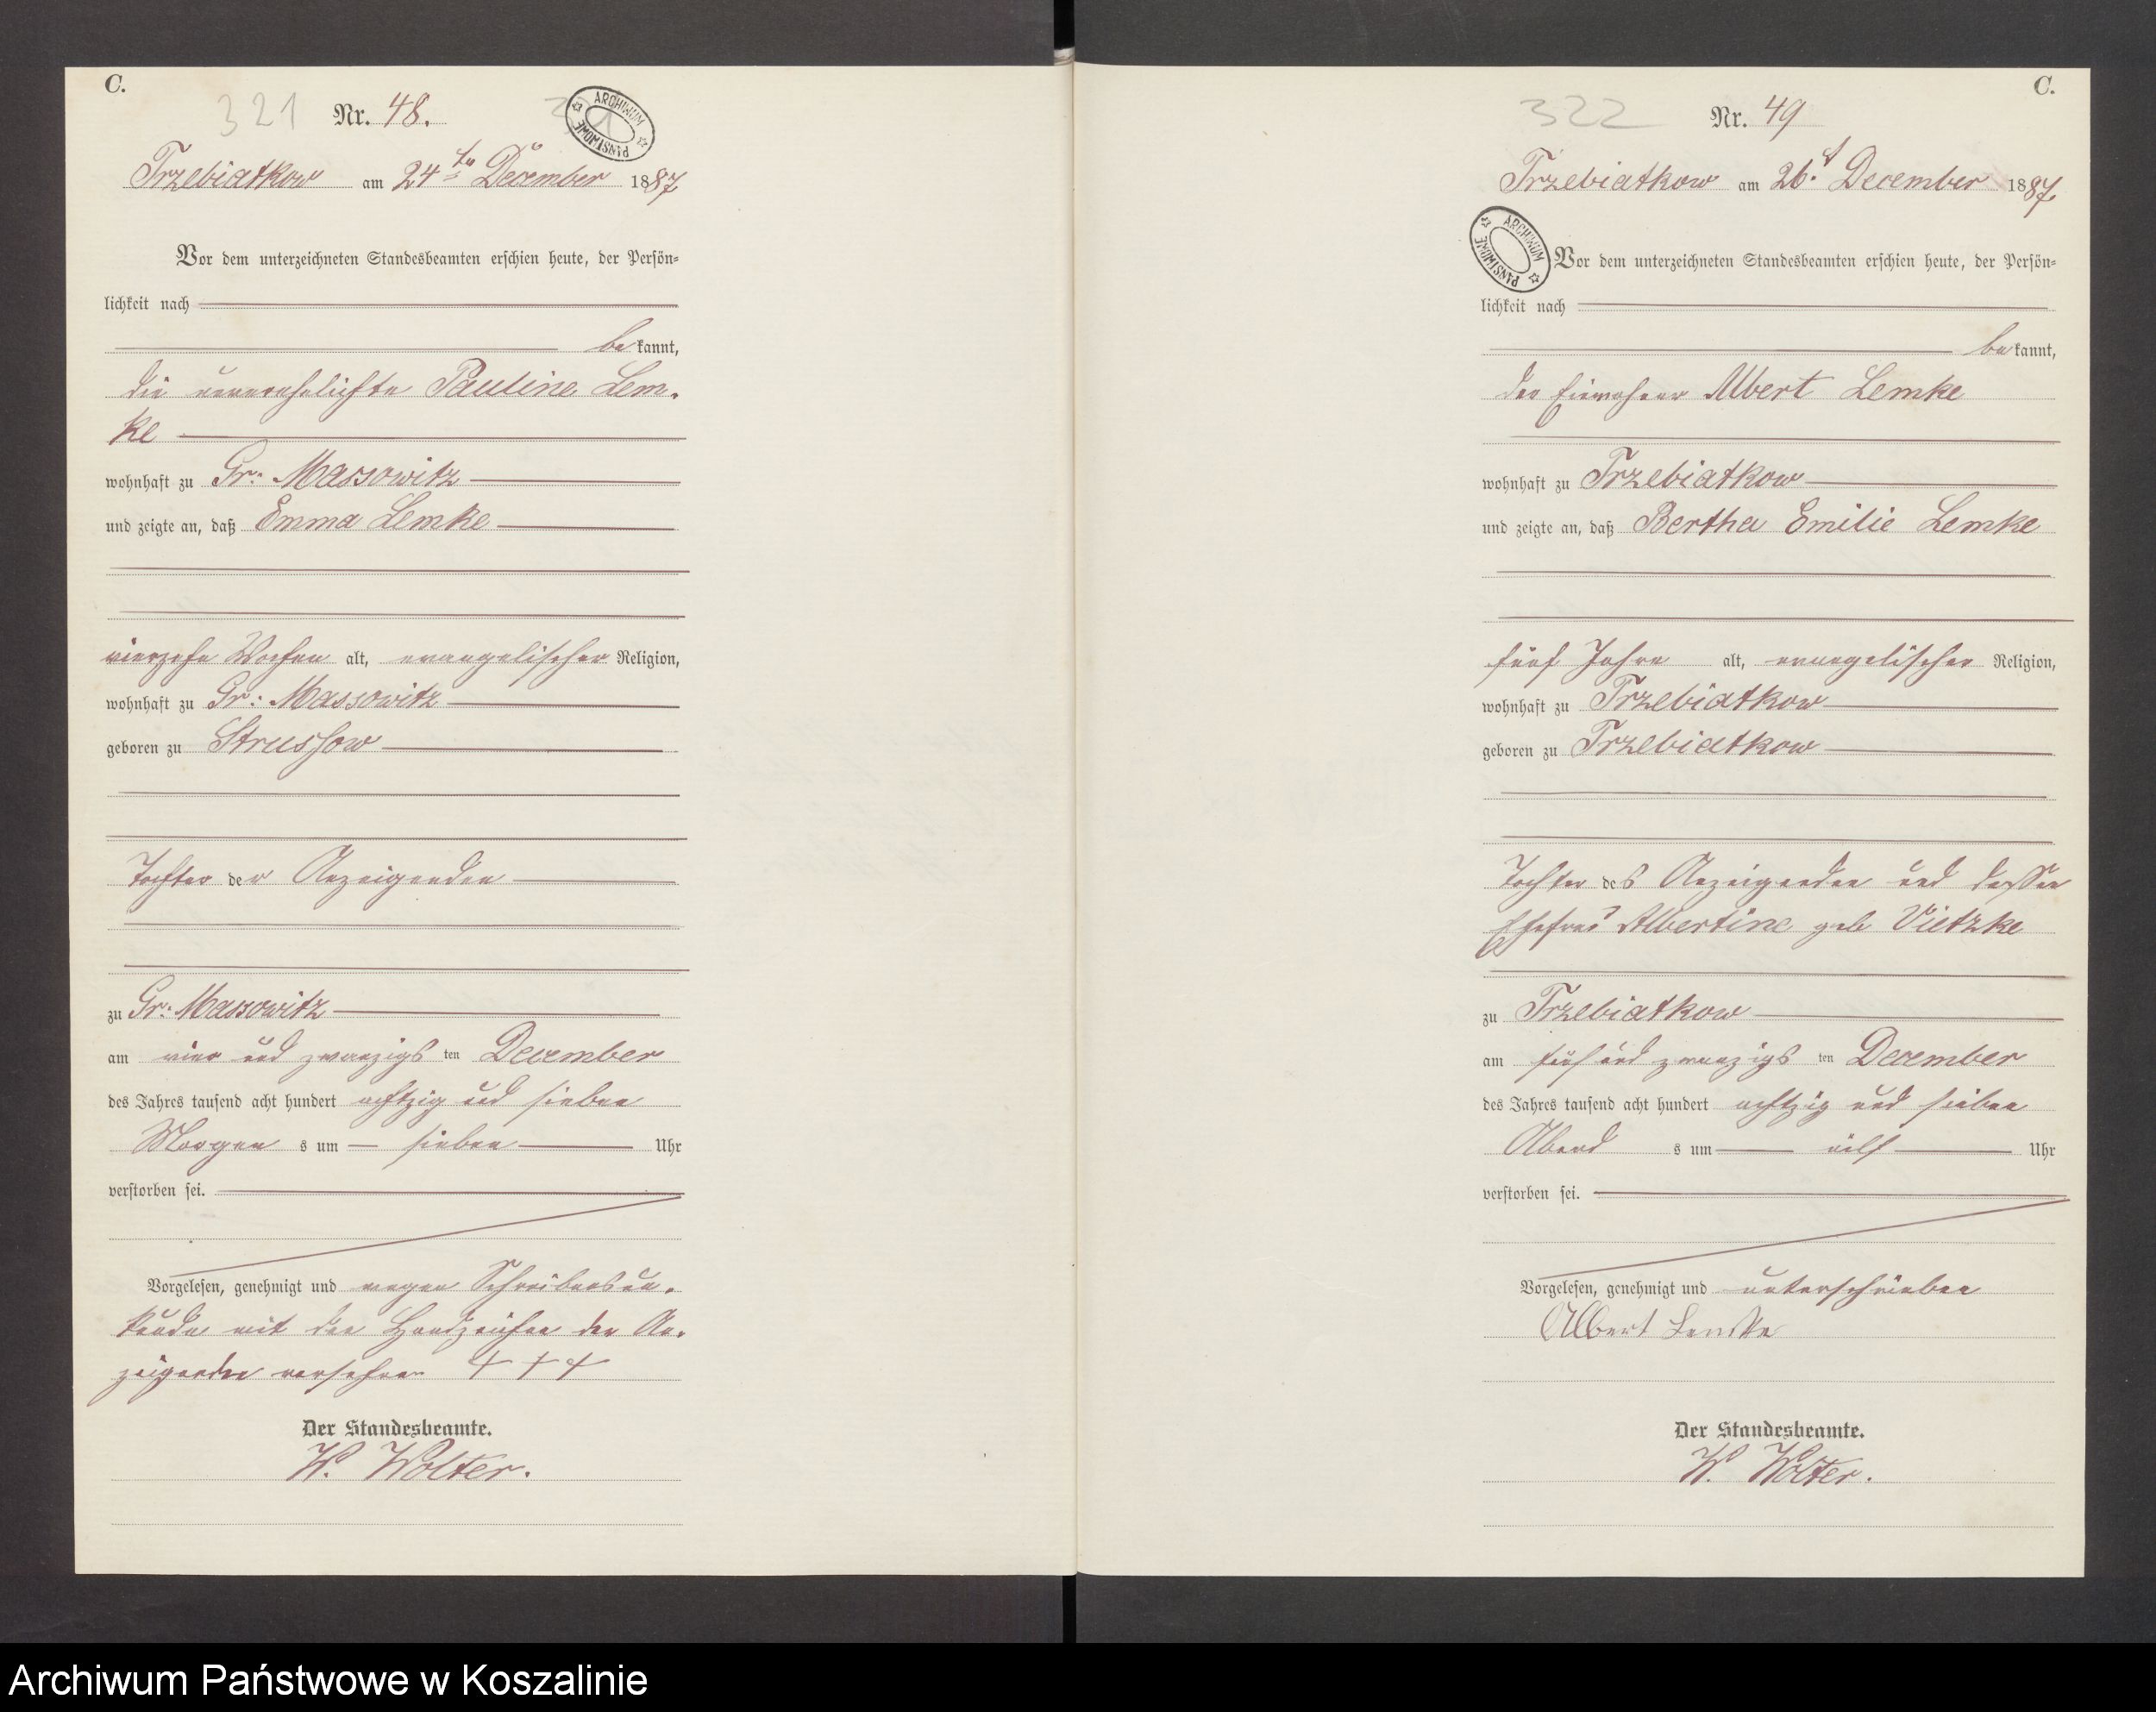 C.
321 Nr. 48.
ARCHIWUM PAŃSTWOWE
Trzebiatkow am 24ten December 1887
Vor dem unterzeichneten Standesbeamten erschien heute, der Persön-
lichkeit nach
bekannt,
die unverehelichte Pauline Lem-
ke
wohnhaft zu Gr: Massowitz
und zeigte an, daß Emma Lemke
vierzehn Wochen alt, evangelischer Religion,
wohnhaft zu Gr: Massowitz
geboren zu Strussow
Tochter der Anzeigenden
zu Gr: Massowitz
am vier und zwanzigsten December
des Jahres tausend acht hundert achtzig und sieben
Morgens um sieben Uhr
verstorben sei.
Vorgelesen, genehmigt und wegen Schreibensun-
kunde mit den Handzeichen der An-
zeigenden versehen + + +
Der Standesbeamte.
W. Wolter.
C.
322 Nr. 49
Trzebiatkow am 26.t December 1887
ARCHIWUM PAŃSTWOWE
Vor dem unterzeichneten Standesbeamten erschien heute, der Persön-
lichkeit nach
bekannt,
der Einwohner Albert Lemke
wohnhaft zu Trzebiatkow
und zeigte an, daß Bertha Emilie Lemke
fünf Jahre alt, evangelischer Religion,
wohnhaft zu Trzebiatkow
geboren zu Trzebiatkow
Tochter des Anzeigenden und dessen
Ehefrau Albertine geb Vietzke
zu Trzebiatkow
am fünf und zwanzigsten December
des Jahres tausend acht hundert achtzig und sieben
Abends um eilf Uhr
verstorben sei.
Vorgelesen, genehmigt und unterschrieben
Albert Lemke
Der Standesbeamte.
W. Wolter.
Archiwum Państwowe w Koszalinie